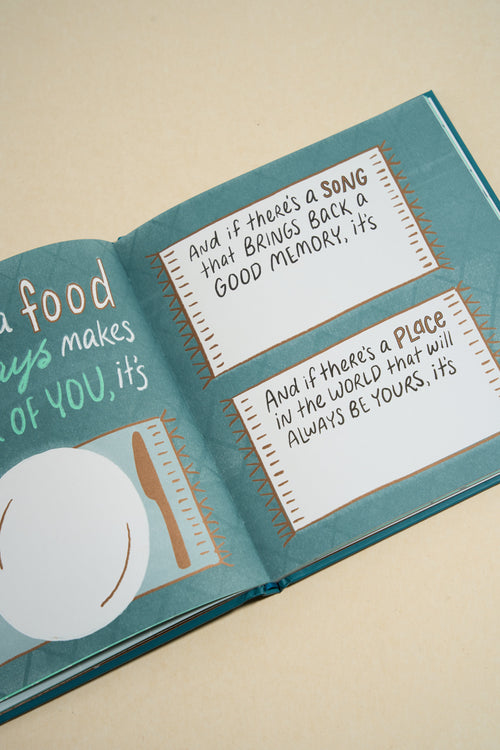 a food
ays makes
OF YOU, it's
And if there's a SONG
that BRINGS BACK a
GOOD MEMORY, it's
And if there's a PLACE
in the WORLD that will
ALWAYS BE YOURS, it's